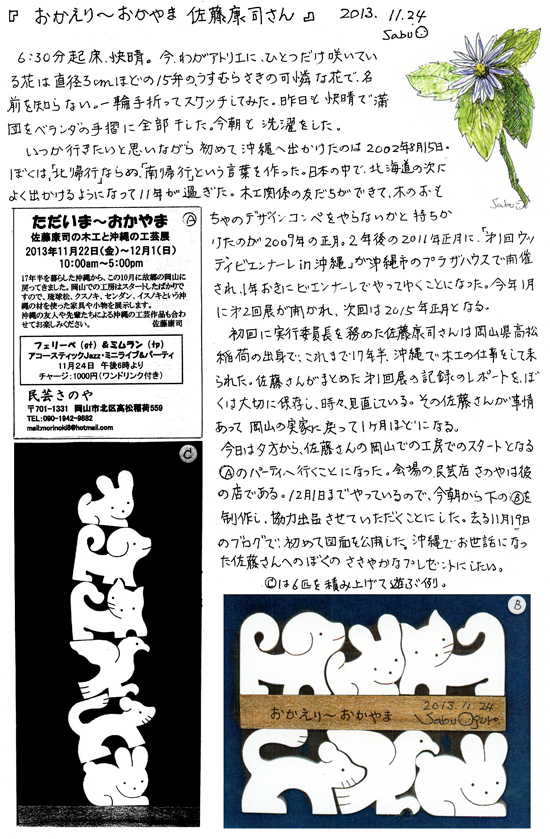 『 おかえり～おかやま 佐藤康司さん 』 2013. 11.24
Sabu
6:30分起床、快晴。今、わがアトリエに、ひとつだけ咲いてい
る花は直径3cmほどの15弁の、うすむらさきの可憐な花で、名
前を知らない。一輪手折ってスケッチしてみた。昨日も快晴で蒲
団をベランダの手摺に全部干した。今朝も洗濯をした。
いつか行きたいと思いながら初めて沖縄へ出かけたのは2002年8月15日。
ぼくは、「北帰行」ならぬ、「南帰行」という言葉を作った。日本の中で、北海道の次に
よく出かけるようになって11年が過ぎた。木工関係の友だちができて、木のおも
Sabu
ちゃのデザインコンペをやらないかと持ちか
けたのが2009年の正月。2年後の2011年正月に、「第1回ウッ
ディビエンナーレin沖縄」が沖縄市のプラザハウスで開催
され、1年おきにビエンナーレでやってゆくことになった。今年1月
に第2回展が開かれ、次回は2015年正月となる。
初回に実行委員長を務めた佐藤康司さんは岡山県高松
稲荷の出身で、これまで17年半、沖縄で木工の仕事をして来
られた。佐藤さんがまとめた第1回展の記録のレポートを、ぼ
くは大切に保存し、時々、見直している。その佐藤さんが事情
あって岡山の実家に戻って1ヶ月ほどになる。
今日は夕方から、佐藤さんの岡山での工房でのスタートとなる
Ⓐのパーティへ行くことになった。会場の民芸店 さのやは彼
の店である。12月1日までやっているので、今朝から下のⒷを
制作し、協力出品させていただくことにした。去る11月19日
のブログで、初めて図面を公開した。沖縄でお世話になっ
た佐藤さんへのぼくのささやかなプレゼントにしたい。
Ⓒは6匹を積み上げて遊ぶ例。
Ⓐ
ただいま～おかやま
佐藤康司の木工と沖縄の工芸展
2013年11月22日(金)～12月1(日)
10:00am～5:00pm
17年半を暮らした沖縄から、この10月に故郷の岡山に
戻ってきました。岡山での工房はスタートしたばかりで
すので、琉球松、クスノキ、センダン、イスノキという沖
縄の材を使った家具や小物を展示します。
沖縄の友人や先輩たちによる沖縄の工芸作品も合わ
せてお楽しみください。 佐藤康司
フェリーペ(gt) &ミムラン(fp)
アコースティックJazz・ミニライブ&パーティ
11月24日 午後6時より
チャージ:1000円(ワンドリンク付き)
民芸さのや
〒701-1331 岡山市北区高松稲荷559
TEL:090-1942-9882
mail:morinoki8@hotmail.com
Ⓒ
Ⓑ
おかえり～おかやま
2013.11.24
Sabu Oguro